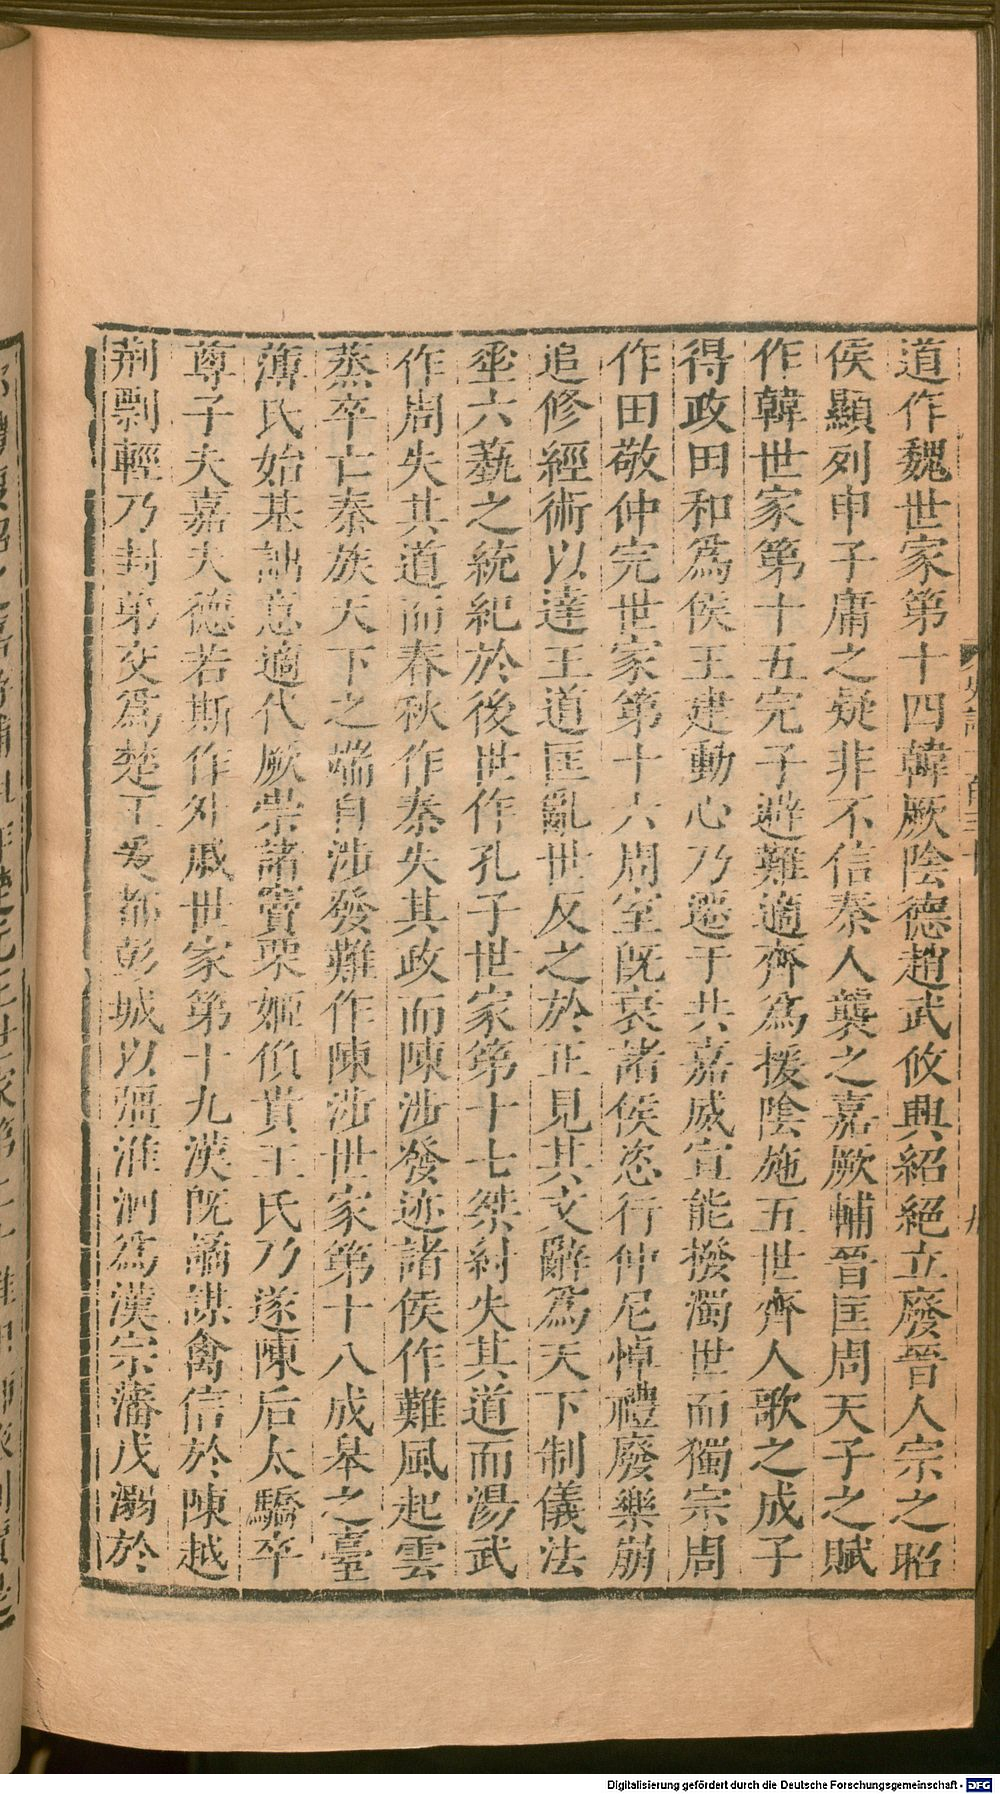 道作魏世家第十四韓厥陰德趙武攸興紹絕立廢晉人宗之昭
侯顯列申子庸之疑非不信秦人襲之嘉厥輔晉匡周天子之賦
作韓世家第十五完子避難適齊爲援陰施五世齊人歌之成子
得政田和爲侯王建動心乃遷于共嘉威宣能撥濁世而獨宗周
作田敬仲完世家第十六周室旣衰諸侯恣行仲尼悼禮廢樂崩
追修經術以達王道匡亂世反之於正見其文辭爲天下制儀法
埀六蓺之統紀於後世作孔子世家第十七桀紂失其道而湯武
作周失其道而春秋作秦失其政而陳涉發迹諸侯作難風起雲
蒸卒亡秦族天下之端自涉發難作陳涉世家第十八成臯之臺
薄氏始基詘意適代厥崇諸竇栗姬偩貴王氏乃遂陳后太驕卒
尊子夫嘉夫德若斯作外戚世家第十九漢旣譎謀禽信於陳越
荆剽輕乃封弟交爲楚王爰都彭城以彊淮泗爲漢宗藩戊溺於
史記一百三十